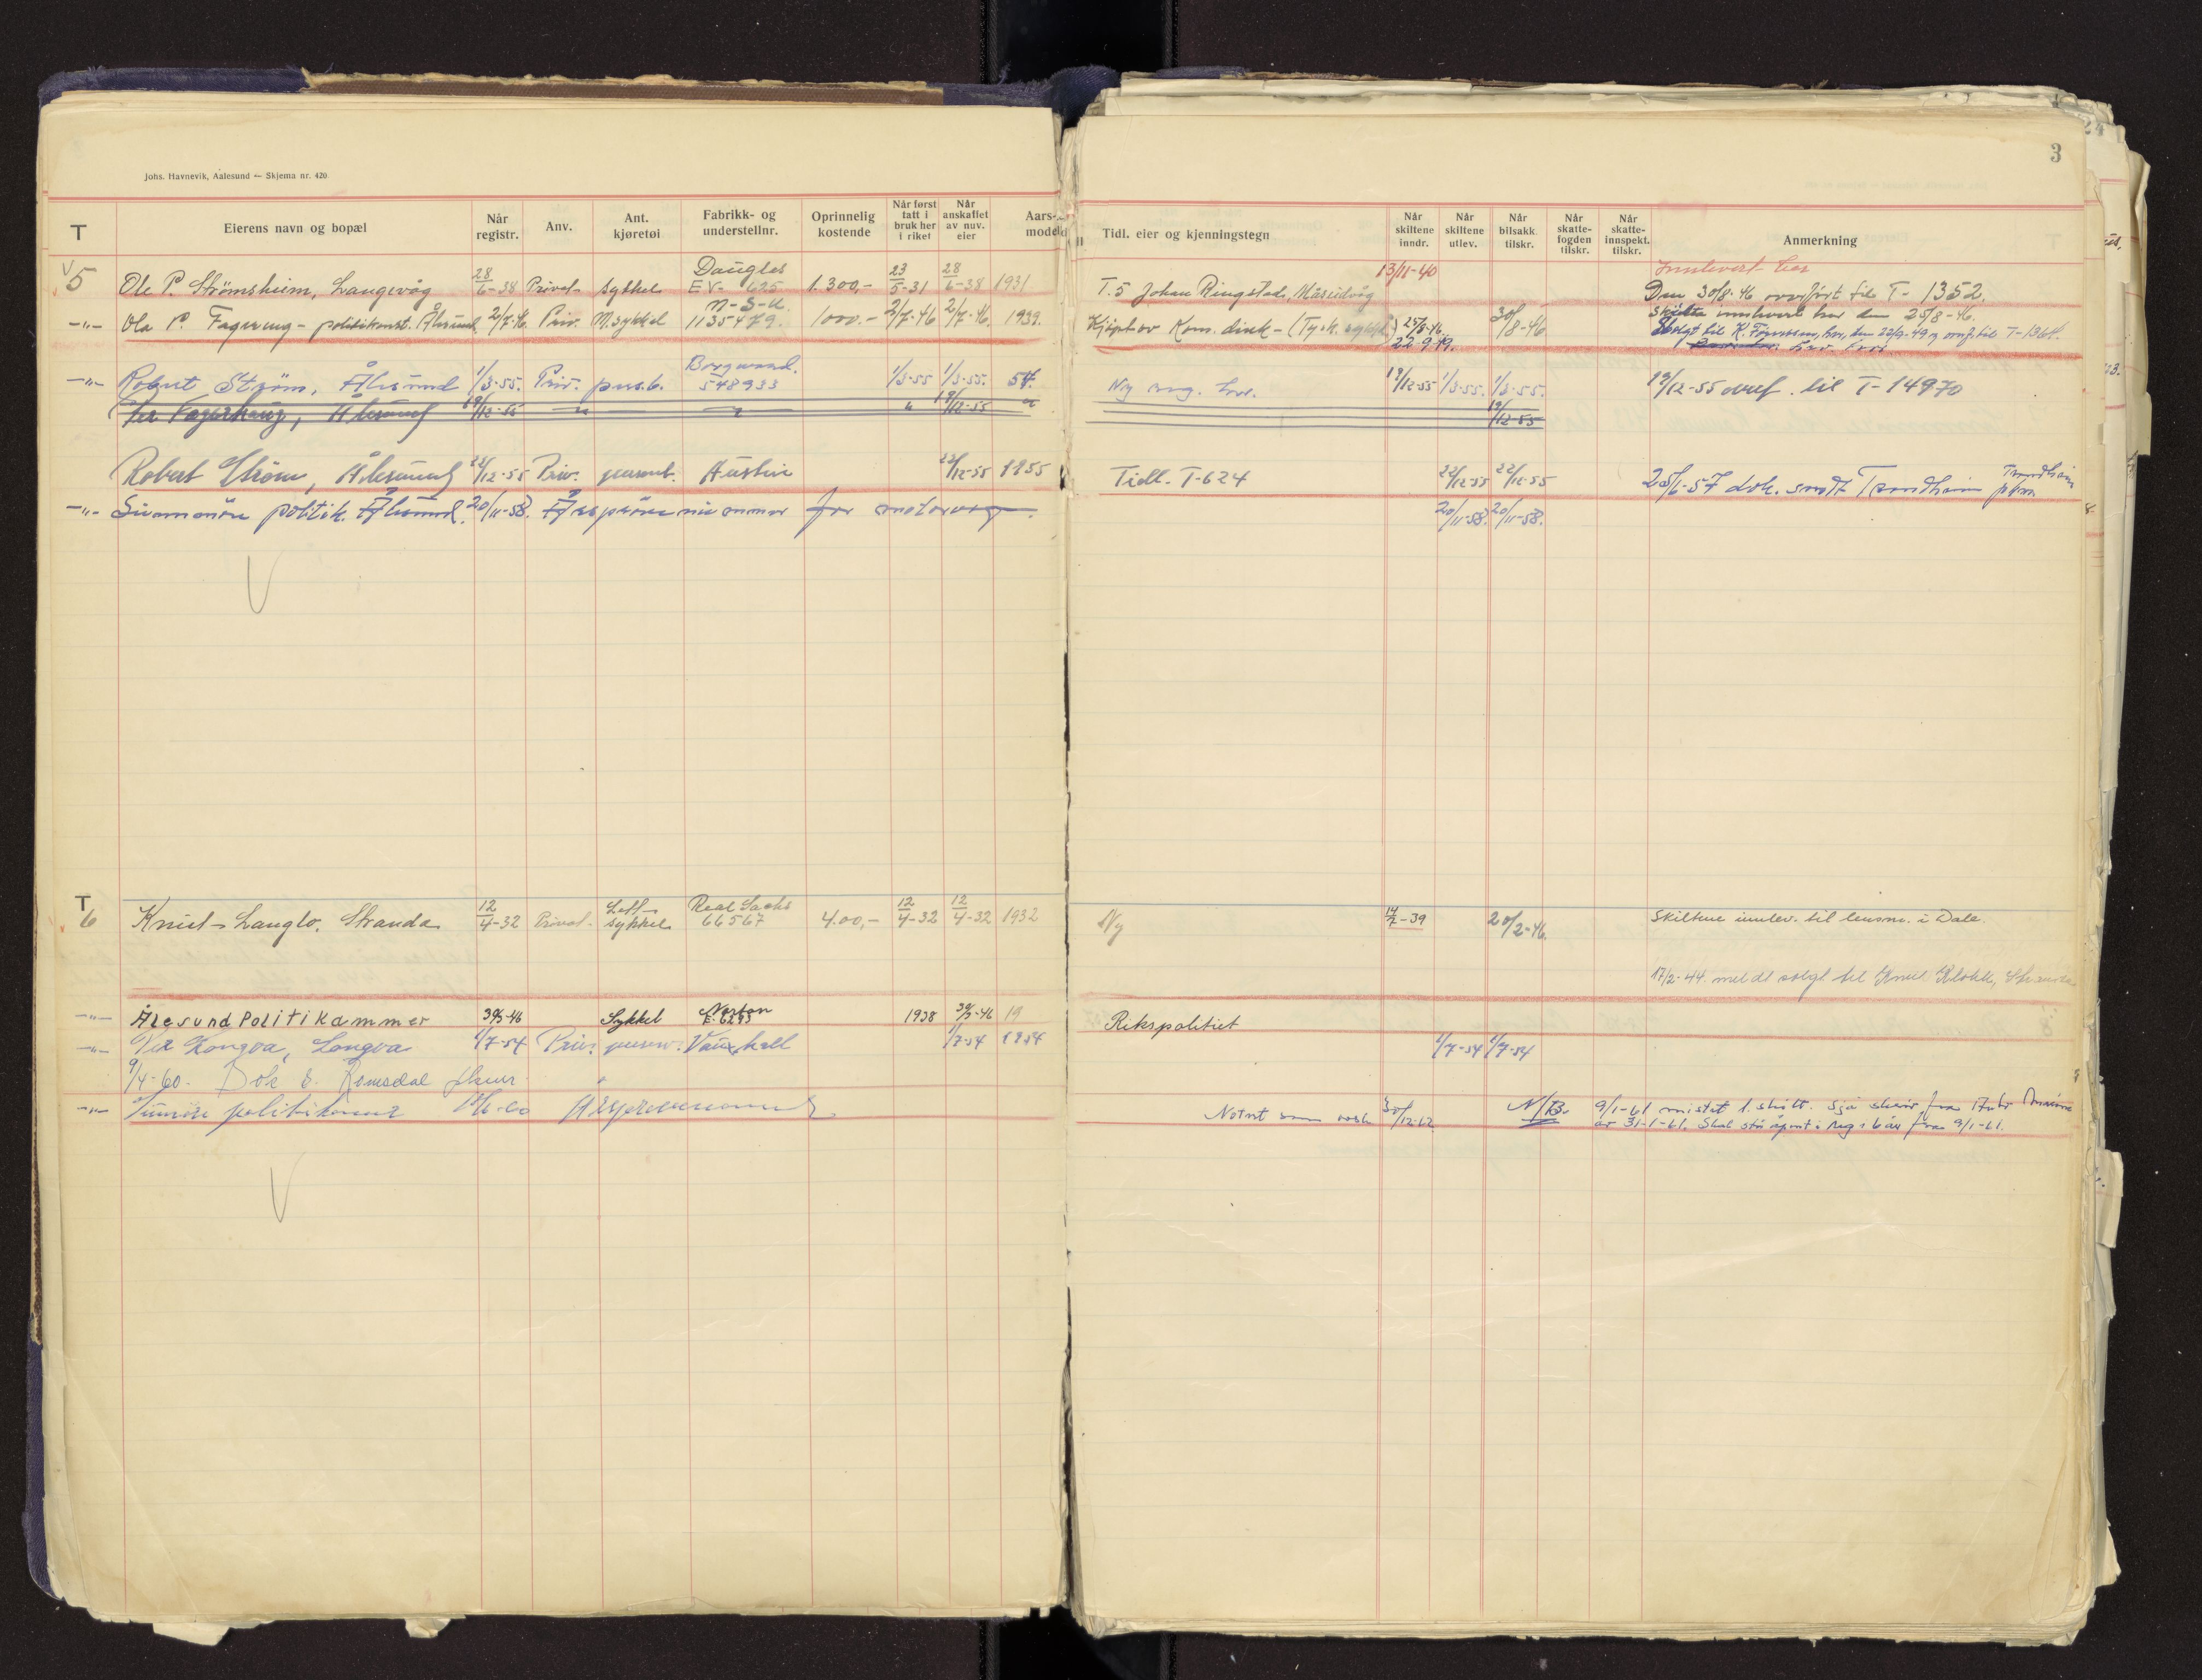 Johs. Havnevik, Aalesund — Skjema nr. 420
3
24
T
Eierens navn og bopæl
Når registr.
Anv.
Ant. kjøretøi
Fabrikk- og understellnr.
Oprinnelig kostende
Når først tatt i bruk her i riket
Når anskaffet av nuv. eier
Aars- modell
Tidl. eier og kjenningstegn
Når skiltene inndr.
Når skiltene utlev.
Når bilsakk. tilskr.
Når skatte- fogden tilskr.
Når skatte- innspekt. tilskr.
Anmerkning
5 Ole P. Strömsheim, Langevåg 28/6-38 Privat sykkel Douglas EV- 695 1.300,- 23/5-31 28/6-38 1931 T. 5 Johan Ringstad, Måseidvåg 13/11-40 Innlevert her
Den 30/8-46 overført til T- 1352.
-"- Ola P. Fagerung - politikonst. Ålesund 2/7-46 Priv. M.sykkel N-S-U. 1135479. 1000.- 2/7-46 2/7-46 1939. Kjöpt av Kom. direk - (Tysk sykkel) 25/8-46 30/8-46 Skiltene innlevert her den 25/8-46.
22-9-49. Solgt til K. her, den 22/9-49 og overf. til T-1364.
-"- Robert Strøm, Ålesund 1/3-55. Priv. pers.b. Borgward. 548933 1/3-55 1/3-55. 54. Ny 19/12-55 1/3-55. 1/3-55. 19/12-55 overf. til T-14970
Per Fagerhaug, Ålesund 19/12-55 " " " 19/12-55 " 19/12-55
Robert Strøm, Ålesund 22/12-55 Priv. personb. Austin 22/12-55 1955 Tidl. T-624 22/12-55 22/12-55 25/6-57 dok. sendt Trondheim pkm
Trondheim
-"- Sunnmøre politik. Ålesund. 20/11-58. Årsprøvenummer for motorvogn. 20/11-58. 20/11-58.
T
6 Knut Langlo, Stranda 12/4-32 Privat Lett- sykkel Real Sachs 66567 400,- 12/4-32 12/4-32 1932 Ny 14/2-39 20/2-46. Skiltene innlev. til lensm. i Dale.
17/2-44 meldt solgt til Knut Klokk, Stranda
-"- Ålesund Politikammer 30/3-46 Sykkel Norton E-6293 1938 30/3-46 19 Rikspolitiet
-"- Per Longva, Longva 1/7-54 Priv. personb. Vauxhall 1/7-54 1954 1/7-54 1/7-54
9/4-60. Dok s. Romsdal pkmr
-"- Sunnmøre politikammer Årsprøvenummer Notert som 30/12-62. N/B. 9/1-61 mistet 1. skilt. Sjå skriv fra
av 31-1-61. Skal stå åpent i reg i 6 år fra 9/1-61.